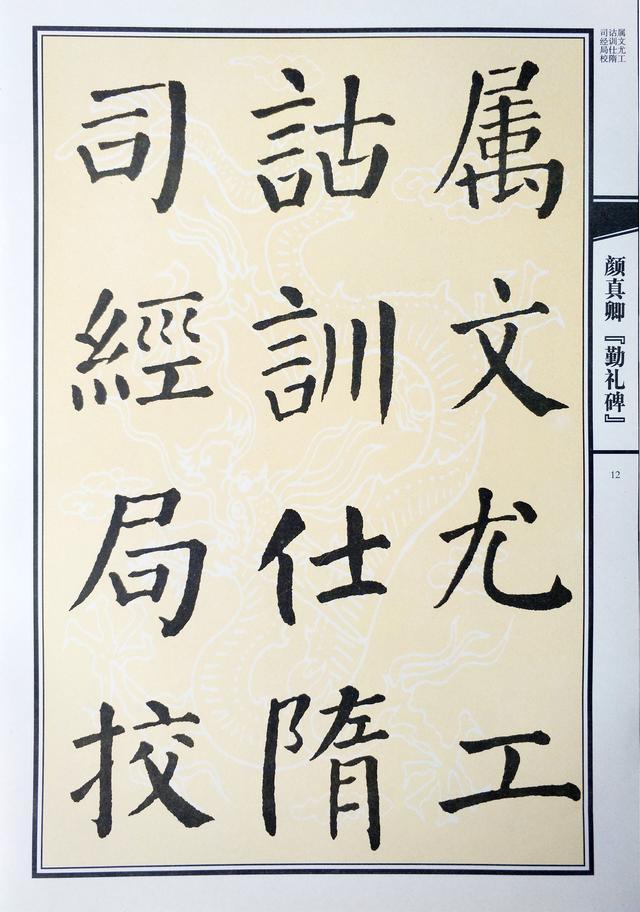 属文尤工
詁訓仕隋
司經局挍
属文尤工
诂训仕隋
司经局校
颜真卿『勤礼碑』
12